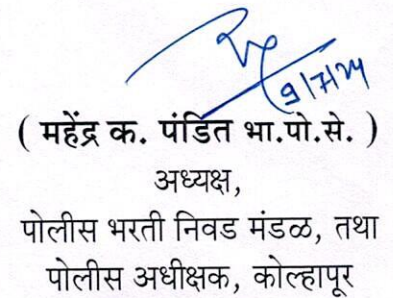 9/7/24
( महेंद्र क. पंडित भा.पो.से. )
अध्यक्ष,
पोलीस भरती निवड मंडळ, तथा
पोलीस अधीक्षक, कोल्हापूर